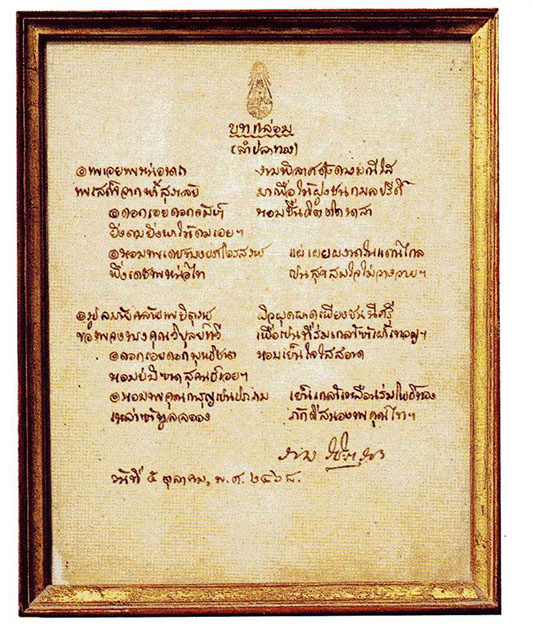 บทกล่อม
(ลำปลาทอง)
๏ พระเอยพระหน่อนาถ งามพิลาศดังดวงมณีใส
พระเสด็จจากฟ้าสุราลัย มาเพื่อให้ฝูงชนกมลปรีดิ์
๏ ดอกเอยดอกจัมปา หอมชื่นจิตติดนาสา
ยิ่งดมยิ่งพาให้ดมเอยฯ
๏ หอมพระเดชทรงยศโอรสราช แผ่เผยผงาดในแดนไกล
พึ่งเดชพระหน่อไท เปนสุขสมใจไม่วางวายฯ
๏ รูปละม้ายคล้ายพระบิตุราช ผิวผุดผาดเพียงชนนีศรี
ขอพระจงทรงคุณวิบุลย์ทวี เพื่อเปนที่ร่มเกล้าข้าเฝ้าเทอญฯ
๏ ดอกเอยดอกพุทธชาด หอมเย็นใจใสสอาด
หอมบมิขาดสุคนธ์เอยฯ
๏ หอมพระคุณการุญเปนประถม เย็นเกล้าเหมือนร่มโพธิ์ทอง
เหล่าข้าทูลลออง ภักดีสนองพระคุณไทฯ
ราม
วันที่ ๕ ตุลาคม, พ.ศ. ๒๔๖๘.